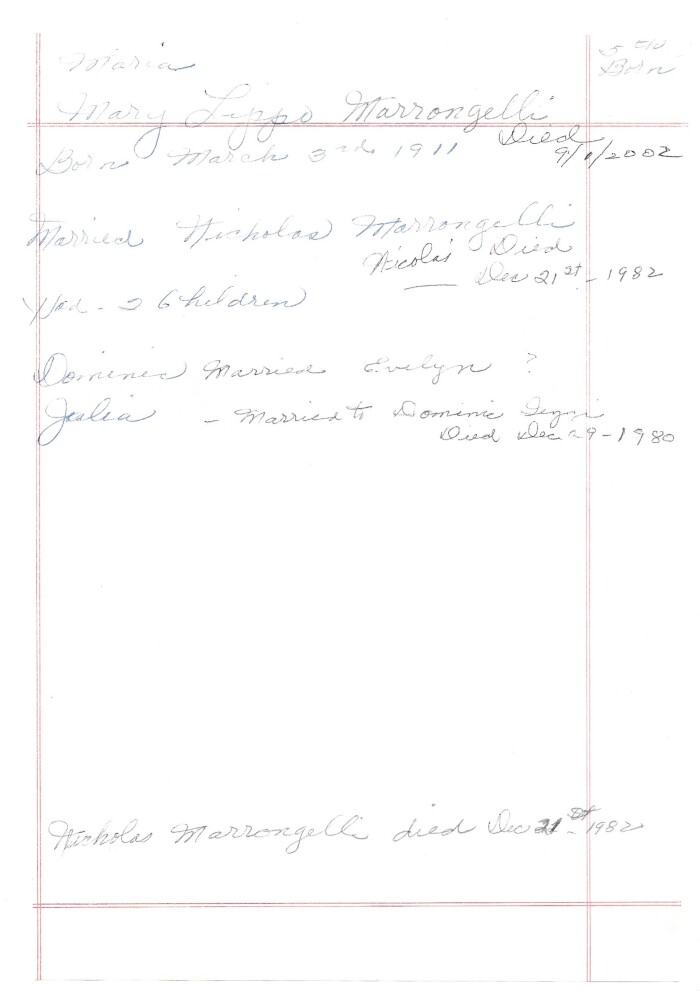 Maria
5th
Born
Mary Lippo Marrongelli
Died
Born March 3rd 1911
9/1/2002
Married Nicholas Marrongelli
Nicolas Died
Dec 21st - 1982
Had - 2 Children
Dominic Married Evelyn ?
Julia - Married to Dominic
Died Dec 29 - 1980
Nicholas Marrongelli died Dec 21st - 1982